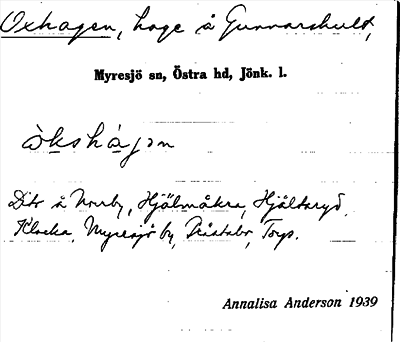 Oxhagen, hage å Gunnarshult,
Myresjö sn, Östra hd, Jönk. l.
òkshàgan
Dito å Norrby, Hjälmåkra, Hjältaryd,
Klocka, Myresjö by, Torp.
Annalisa Anderson 1939